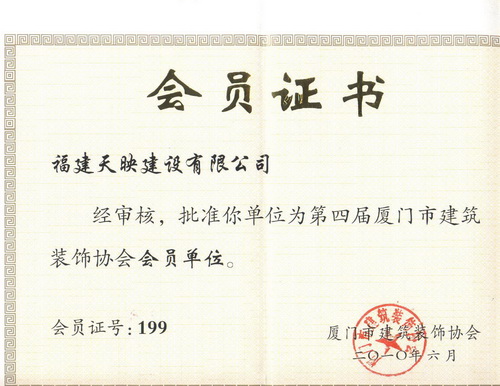 会员证书
福建天映建设有限公司
经审核，批准你单位为第四届厦门市建筑
装饰协会会员单位。
会员证号：199
厦门市建筑装饰协会
二〇一〇年六月
厦门市建筑装饰协会